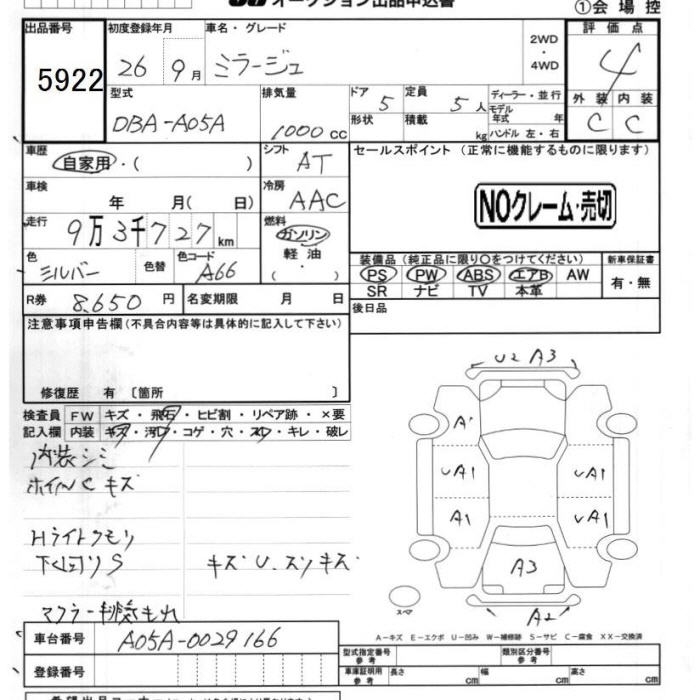 オークション出品申込書
①会場控
出品番号 初度登録年月 車名・グレード 2WD・4WD 評価点
5922 26 9月 ミラージュ 4
型式 排気量 ドア 5 定員 5人 ディーラー・並行
モデル年式 年式
DBA-A05A 1000cc 形状 積載 kg ハンドル 左・右
外装 内装
C C
車歴 自家用・( ) シフト AT セールスポイント (正常に機能するものに限ります)
車検 年 月( 日) 冷房 AAC NOクレーム・売切
走行 9万3千727km 燃料 ガソリン
軽油
( ・ )
色 シルバー 色替 色コード A66
装備品 (純正品に限り○をつけてください) 新車保証書
PS PW ABS エアB AW 有・無
SR ナビ TV 本革
R券 8,650円 名変期限 月 日 後日品
注意事項申告欄 (不具合内容等は具体的に記入して下さい)
修復歴 有 〔箇所 〕
検査員 FW キズ・飛石・ヒビ割・リペア跡・×要
記入欄 内装 キズ・汚れ・コゲ・穴・スレ・キレ・破レ
内装シミ
ホイルC キズ
Hライトクモリ
下回りS キズU.スリキズ
マフラー排気もれ
U2 A3
A'
UA1 UA1
A1 UA1
A3
A2
スペア
A-キズ E-エクボ U-凹み W-補修跡 S-サビ C-腐食 XX-交換済
車台番号 A05A-0029166
登録番号
型式指定番号 参考 類別区分番号 参考
車庫証明用 参考 長さ cm 幅 cm 高さ cm